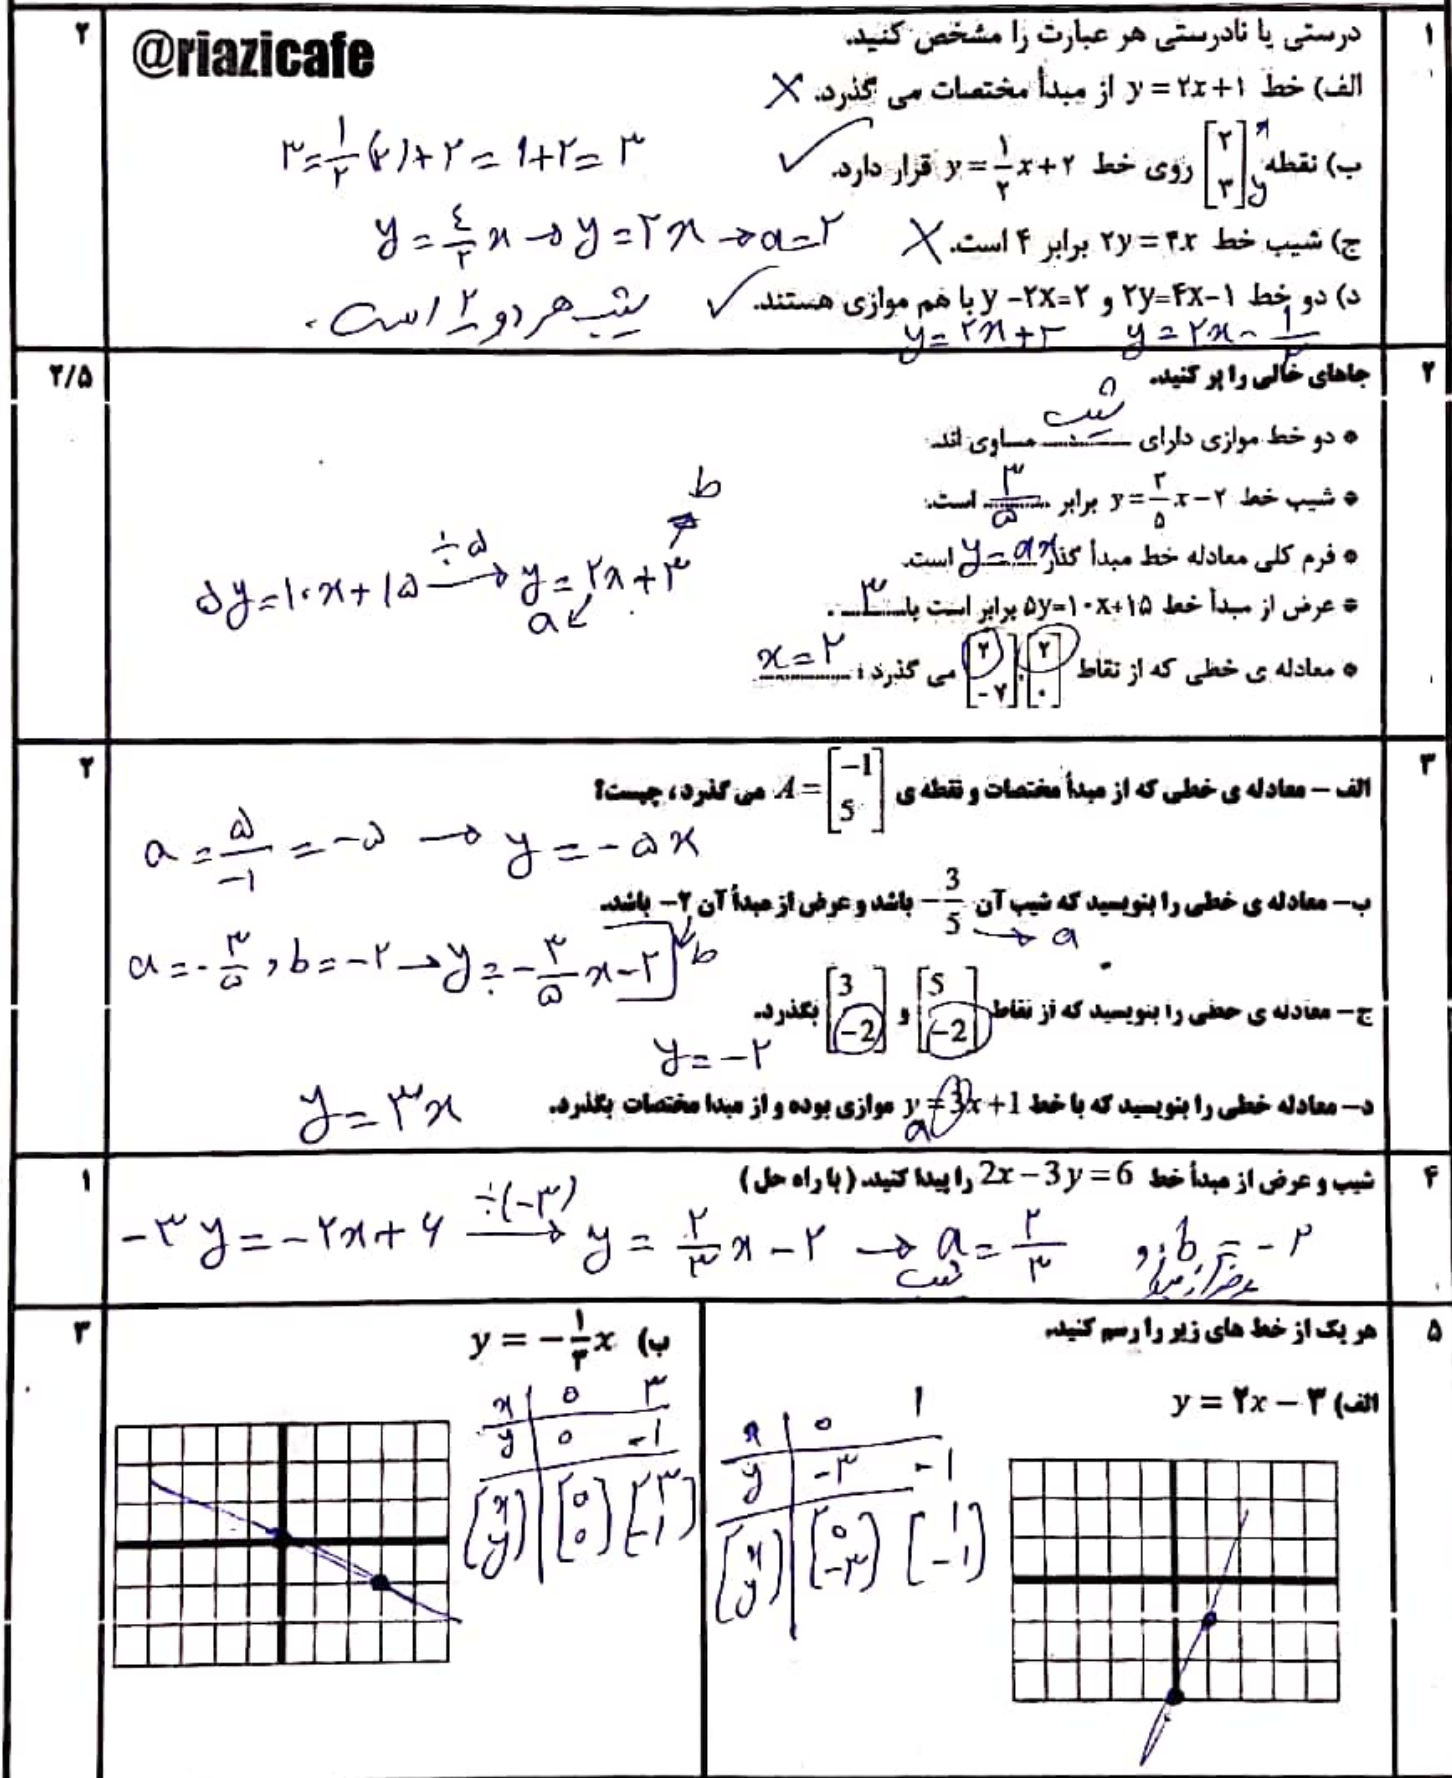 ۱
درستی یا نادرستی هر عبارت را مشخص کنید.
۲
@riazicafe
الف) خط y = ۲x+۱ از مبدأ مختصات می گذرد. ✗
ب) نقطه [۲ ۳] x y روی خط y = ۱/۲ x+۲ قرار دارد. ✓
۳ = ۱/۲ (۲)+۲ = ۱+۲ = ۳
ج) شیب خط ۲y = ۴x برابر ۴ است. ✗
y = ۴/۲ x → y = ۲x → a = ۲
د) دو خط ۲y=۴x-۱ و y -۲x=۳ با هم موازی هستند. ✓
شیب هر دو ۲ است.
y = ۲x+۳ y = ۲x - ۱/۲
۲
جاهای خالی را پر کنید.
۲/۵
* دو خط موازی دارای شیب مساوی اند.
* شیب خط y = ۳/۵ x-۲ برابر ۳/۵ است.
* فرم کلی معادله خط مبدأ گذر y = ax است.
* عرض از مبدأ خط ۵y=۱۰x+۱۵ برابر است با ۳ .
۵y = ۱۰x + ۱۵ ÷۵ → y = ۲x + ۳
a b
* معادله ی خطی که از نقاط [۲ ۰] , [۲ -۷] می گذرد : x = ۲
۳
الف – معادله ی خطی که از مبدأ مختصات و نقطه ی A = [-1 5] می گذرد، چیست؟
۲
a = ۵/-۱ = -۵ → y = -۵x
ب- معادله ی خطی را بنویسید که شیب آن -3/5 باشد و عرض از مبدأ آن ۲- باشد.
→ a b
a = -۳/۵ , b = -۲ → y = -۳/۵ x - ۲
ج- معادله ی خطی را بنویسید که از نقاط [5 -2] و [3 -2] بگذرد.
y = -۲
د- معادله خطی را بنویسید که با خط y = 3x+1 موازی بوده و از مبدا مختصات بگذرد.
a
y = ۳x
۴
شیب و عرض از مبدأ خط 2x-3y=6 را پیدا کنید. ( با راه حل )
۱
-۳y = -۲x + ۶ ÷(-۳) → y = ۲/۳ x - ۲ → a = ۲/۳ , b = -۲
شیب عرض از مبدا
۵
هر یک از خط های زیر را رسم کنید.
الف) y = ۲x - ۳
x 0 1
y -۳ -1
[x y] [0 -۳] [1 -1]
ب) y = -۱/۳ x
۳
x 0 ۳
y 0 -1
[x y] [0 0] [۳ -1]